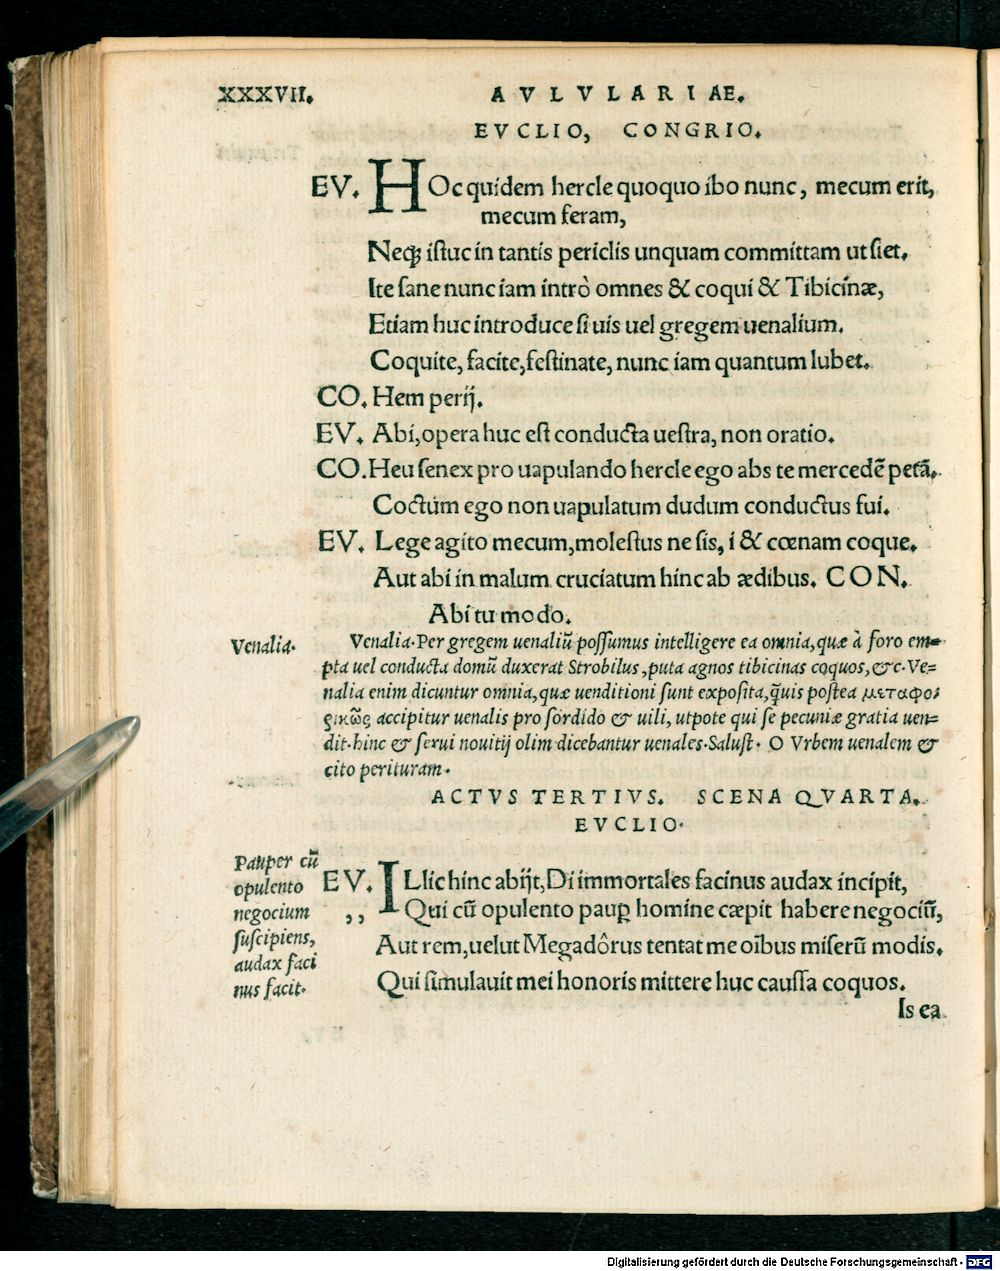 XXXVII. AVLVLARIAE.
EVCLIO, CONGRIO.
EV. HOc quidem hercle quoquo ibo nunc, mecum erit,
mecum feram,
Neqꝫ istuc in tantis periclis unquam committam ut siet.
Ite sane nunc iam intrò omnes & coqui & Tibicinæ,
Etiam huc introduce si uis uel gregem uenalium.
Coquite, facite, festinate, nunc iam quantum lubet.
CO. Hem perij.
EV. Abi, opera huc est conducta uestra, non oratio.
CO. Heu senex pro uapulando hercle ego abs te mercedē petā.
Coctum ego non uapulatum dudum conductus fui.
EV. Lege agito mecum, molestus ne sis, i & cœnam coque.
Aut abi in malum cruciatum hinc ab ædibus. CON.
Abi tu modo.
Venalia.
Venalia. Per gregem uenaliū possumus intelligere ea omnia, quæ à foro em=
pta uel conducta domū duxerat Strobilus, puta agnos tibicinas coquos, &c. Ve=
nalia enim dicuntur omnia, quæ uenditioni sunt exposita, q̃uis postea μεταφο
ρικῶς accipitur uenalis pro sordido & uili, utpote qui se pecuniæ gratia uen=
dit. hinc & serui nouitij olim dicebantur uenales. Salust. O Vrbem uenalem &
cito perituram.
ACTVS TERTIVS. SCENA QVARTA.
EVCLIO.
Pauper cū
opulento
negocium
suscipiens,
audax faci
nus facit.
EV. ILlic hinc abijt, Di immortales facinus audax incipit,
,, Qui cū opulento pauꝑ homine cæpit habere negociū,
Aut rem, uelut Megadôrus tentat me oībus miserū modis.
Qui simulauit mei honoris mittere huc caussa coquos.
Is ea
Digitalisierung gefördert durch die Deutsche Forschungsgemeinschaft - DFG